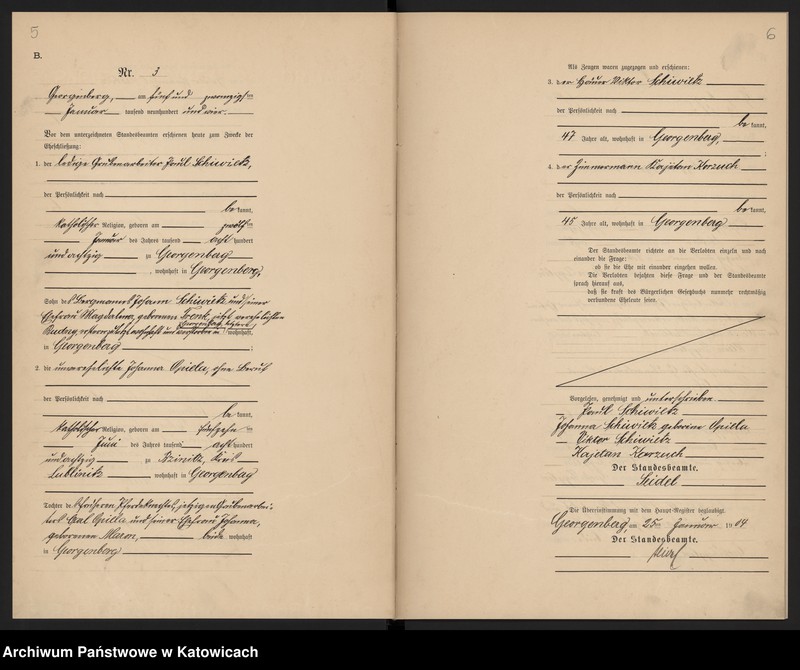 5
B.
Nr. 3
Georgenberg, am fünf und zwanzigsten
Januar tausend neunhundert und vier.
Vor dem unterzeichneten Standesbeamten erschienen heute zum Zwecke der
Eheschließung:
1. der ledige Grubenarbeiter Paul Schiwietz,
der Persönlichkeit nach
be kannt,
katholischer Religion, geboren am zwölften
Januar des Jahres tausend acht hundert
und achtzig zu Georgenberg
, wohnhaft in Georgenberg,
Sohn des Bergmanns Johann Schiwietz und seiner
Ehefrau Magdalena, geborenen jetzt verehelichten
wohnhaft
in Georgenberg ;
2. die unverehelichte Johanna Opiella, ohne Beruf
der Persönlichkeit nach
be kannt,
katholischer Religion, geboren am
Juni des Jahres tausend acht hundert
und achtzig zu Kreis
Lublinitz wohnhaft in Georgenberg
Tochter des früheren Pferdeknechts, jetzigen Grubenarbei-
ters Carl Opiella und seiner Ehefrau Johanna,
geborenen beide wohnhaft
in Georgenberg
6
Als Zeugen waren zugezogen und erschienen:
3. der Häuer Viktor Schiwietz
der Persönlichkeit nach
be kannt,
47 Jahre alt, wohnhaft in Georgenberg,
;
4. der Zimmermann Kajetan Korzuch
der Persönlichkeit nach
be kannt,
45 Jahre alt, wohnhaft in Georgenberg
Der Standesbeamte richtete an die Verlobten einzeln und nach
einander die Frage:
ob sie die Ehe mit einander eingehen wollen.
Die Verlobten bejahten diese Frage und der Standesbeamte
sprach hierauf aus,
daß sie kraft des Bürgerlichen Gesetzbuchs nunmehr rechtmäßig
verbundene Eheleute seien.
Vorgelesen, genehmigt und unterschrieben
Paul Schiwietz
Johanna Schiwietz geborene Opiella
Viktor Schiwietz
Kajetan Korzuch
Der Standesbeamte.
Seidel
Die Übereinstimmung mit dem Haupt-Register beglaubigt.
Georgenberg, am 25ten Januar 1904
Der Standesbeamte.
Archiwum Państwowe w Katowicach